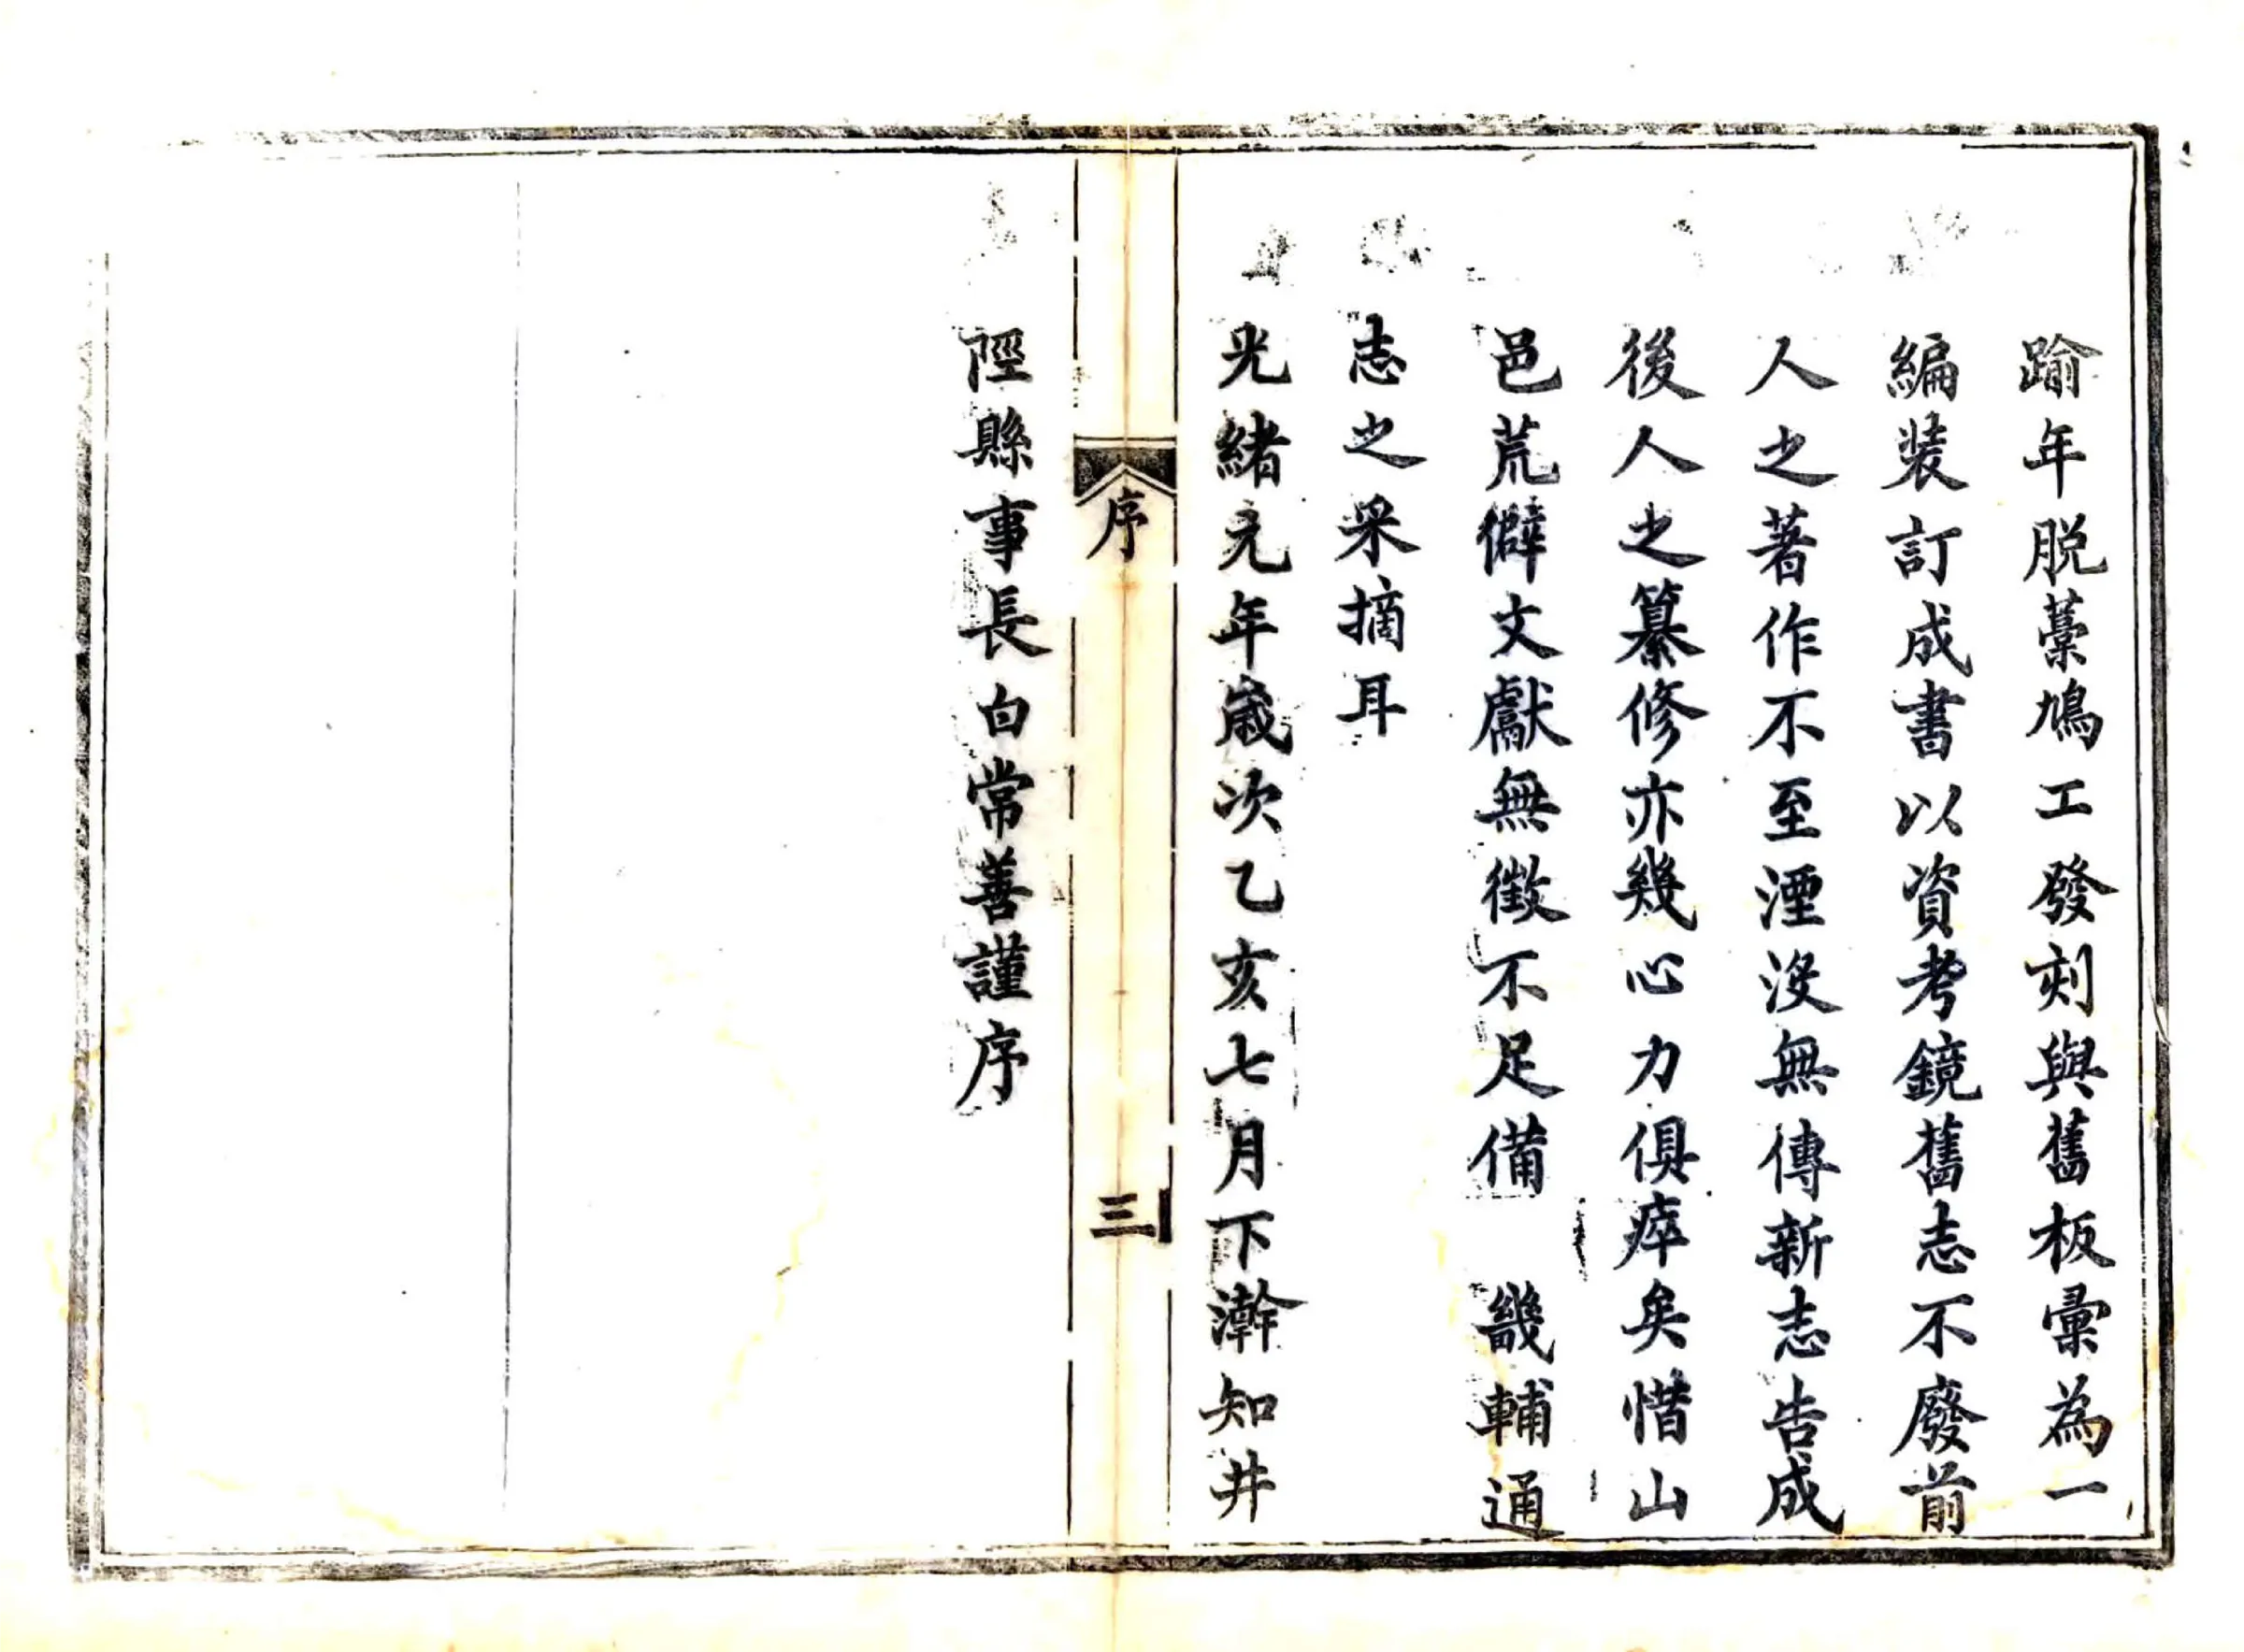 踰年脱藁鳩工發刻與舊板彙為一
編装訂成書以資考鏡舊志不廢前
人之著作不至湮沒無傳新志告成
後人之纂修亦幾心力俱瘁矣惜山
邑荒僻文獻無徵不足備　畿輔通
志之采摘耳
光緒元年歲次乙亥七月下澣知井
序
三
陘縣事長白常善謹序